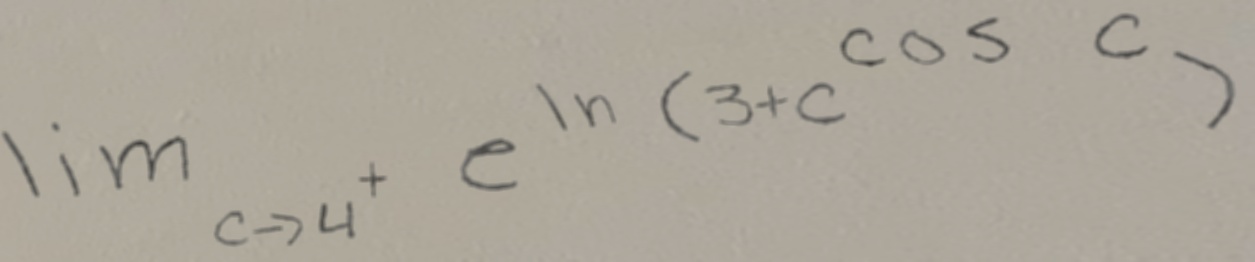 \lim_{c \to 4^+} e^{\ln(3+c^{\cos c})}